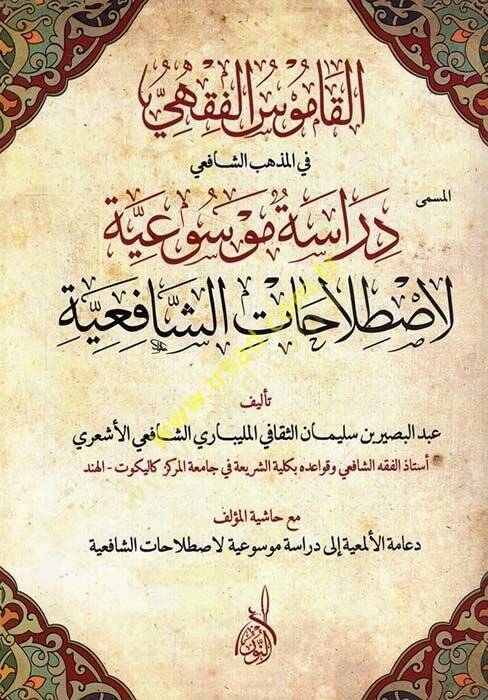 القاموس الفقهيّ
في المذهب الشافعي
المسمى
دراسة موسوعيّة
لاصطلاحات الشّافعيّة
تأليف
عبد البصير بن سليمان الثقافي المليباري الشافعي الأشعري
أستاذ الفقه الشافعي وقواعده بكلية الشريعة في جامعة المركز كاليكوت - الهند
مع حاشية المؤلف
دعامة الألمعية إلى دراسة موسوعية لاصطلاحات الشافعية
النور